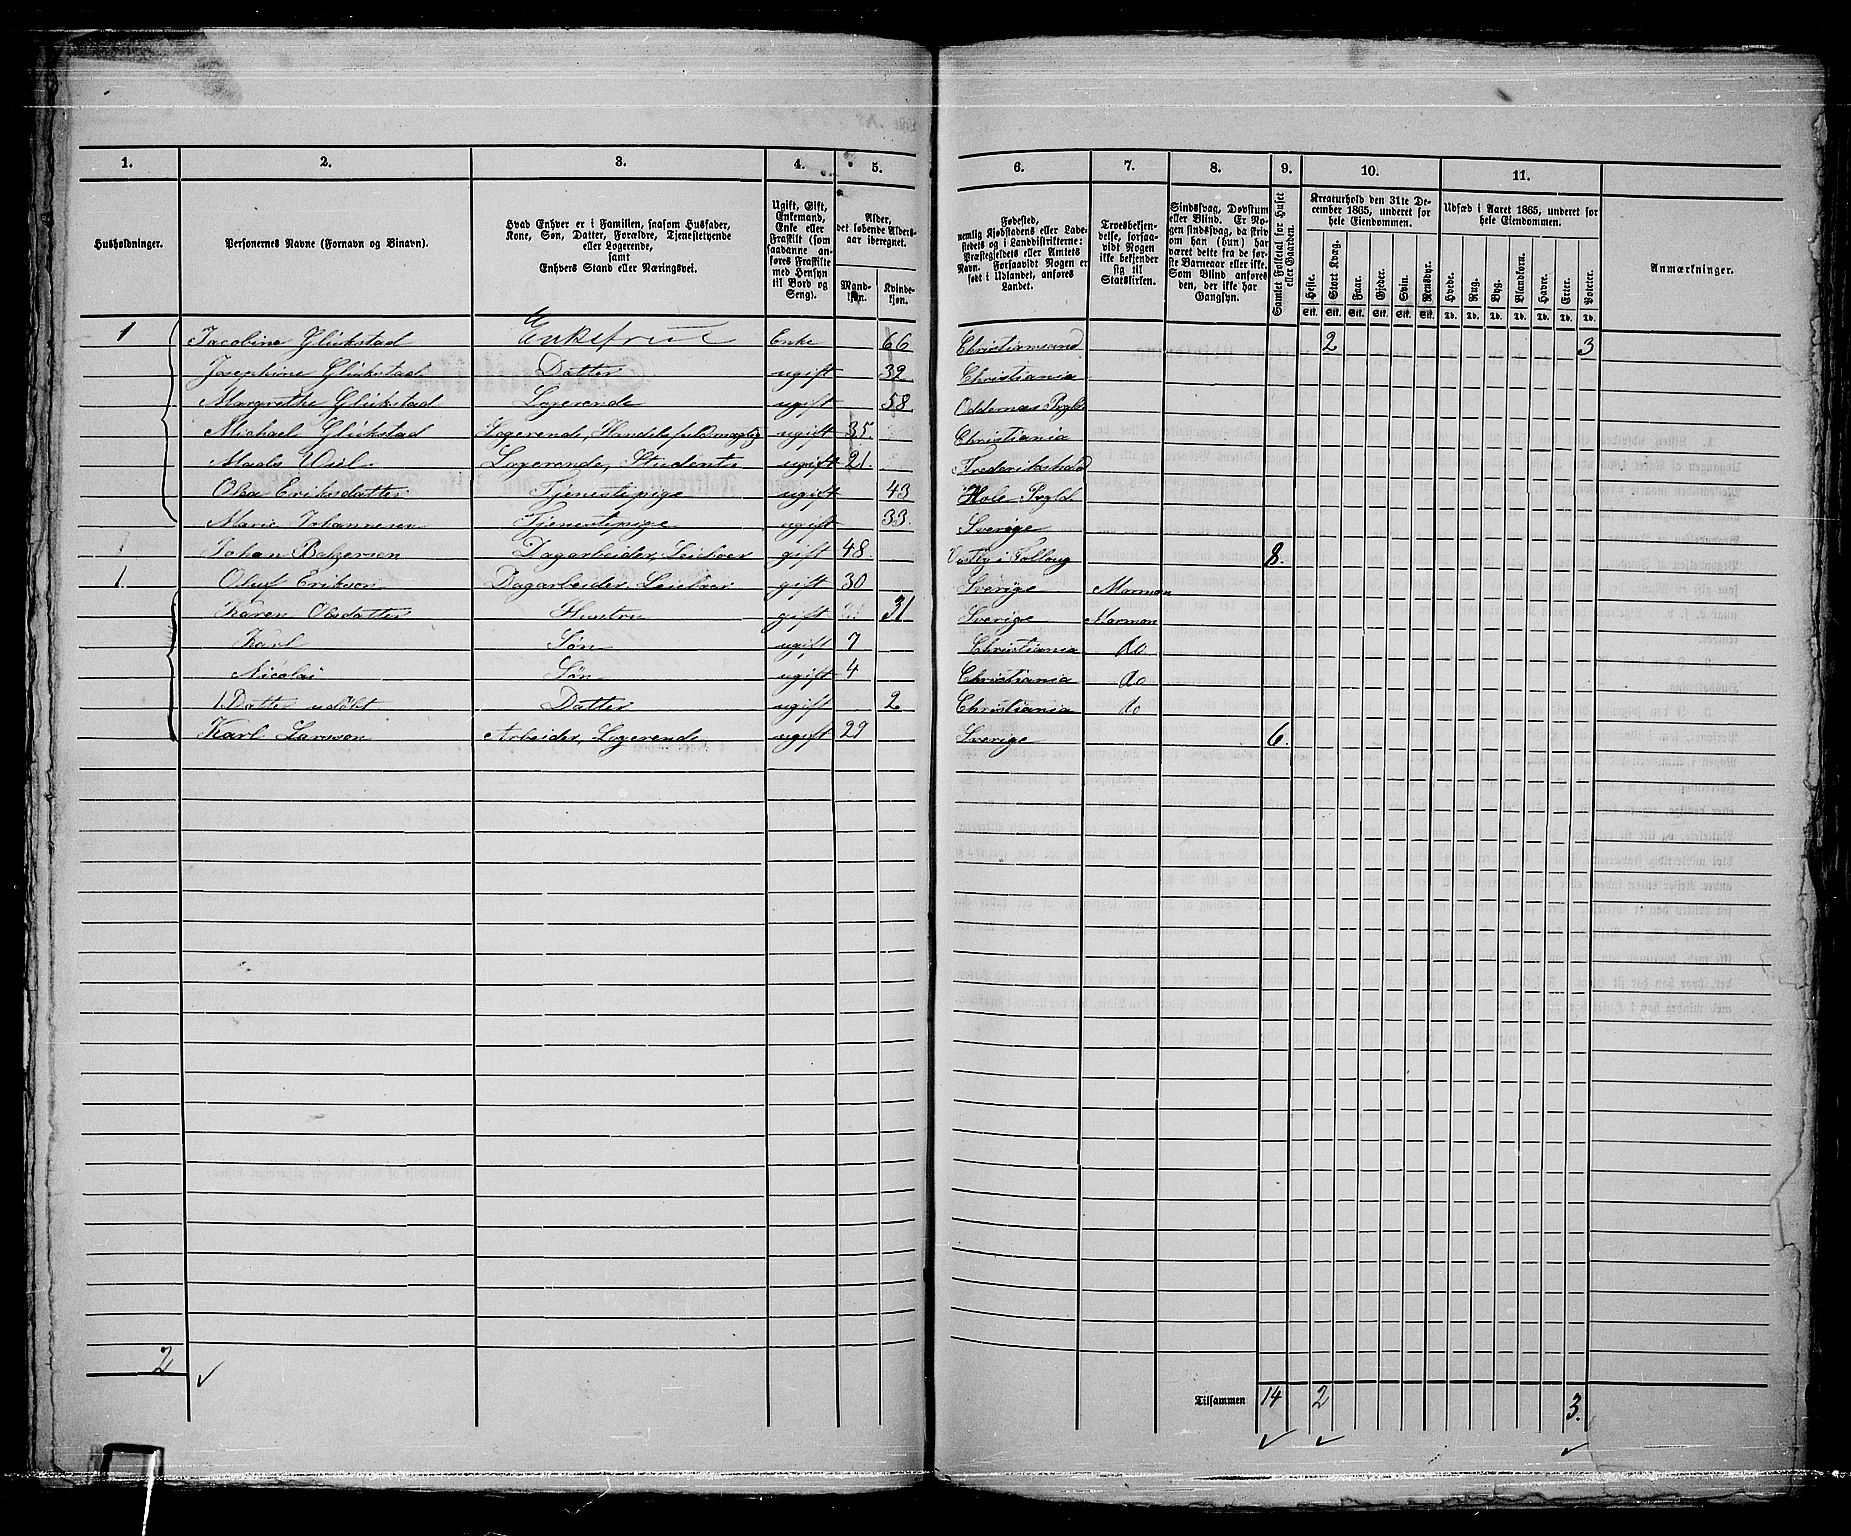 1. 2. 3. 4. 5. 6. 7. 8. 9. 10. 11.
Husholdninger.
Personernes Navne (Fornavn og Binavn).
Hvad Enhver er i Familien, saasom Husfader,
Kone, Søn, Datter, Forældre, Tjenestetyende
eller Logerende,
samt
Enhvers Stand eller Næringsvei.
Ugift, Gift,
Enkemand,
Enke eller
Fraskilt (som
saadanne an-
føres Fraskilte
med Hensyn
til Bord og
Seng).
Alder,
det løbende Alders-
aar iberegnet.
Mand-
kjøn.
Kvinde-
kjøn.
Fødested,
nemlig Kjøbstadens eller Lade-
stedets og i Landdistrikterne:
Præstegjeldets eller Amtets
Navn. Forsaavidt Nogen er
født i Udlandet, anføres
Landet.
Troesbekjen-
delse, forsaa-
vidt Nogen
ikke bekjender
sig til
Statskirken.
Sindssvag, Døvstum
eller Blind. Er No-
gen sindssvag, da skriv
om han (hun) har
været dette fra de før-
ste Barneaar eller ikke.
Som Blind anføres
den, der ikke har
Gangsyn.
Samlet Folketal for Huset
eller Gaarden.
Kreaturhold den 31te De-
cember 1865, underet for
hele Eiendommen.
Heste. Stort Kvæg. Faar. Gjeder. Svin. Rensdyr.
Stk. Stk. Stk. Stk. Stk. Stk.
Udsæd i Aaret 1865, underet for
hele Eiendommen.
Hvede. Rug. Byg. Blandkorn. Havre. Erter. Poteter.
Td. Td. Td. Td. Td. Td. Td.
Anmærkninger.
1 Jacobine Glükstad Enkefrue Enke 66 Christiansand 2 3
Josephine Glükstad Datter ugift 32 Christiania
Margrethe Glükstad Logerende ugift 58 Oddernæs Prgld
Michael Glükstad Logerende, Handelsfuldmægtig ugift 35. Christiania
Mads Wiel Logerende, Student ugift 21. Frederikshald
Olea Eriksdatter Tjenestepige ugift 43 Hole Prgld
Marie Johannesen Tjenestepige ugift 33. Sverige
Johan Balzersen Dagarbeider, Leieboer gift 48. Vestby i Folloug 8.
1. Oluf Erikson Dagarbeider, Leieboer gift 30 Sverige Mormon
Karen Olsdatter Hustru gift 31 Sverige Mormon
Karl Søn ugift 7 Christiania do
Nicolai Søn ugift 4 Christiania do
1 Datter udöbt Datter ugift 2 Christiania do
Karl Larsson Arbeider, Logerende ugift 29 Sverige 6.
2
Tilsammen 14 2 3.